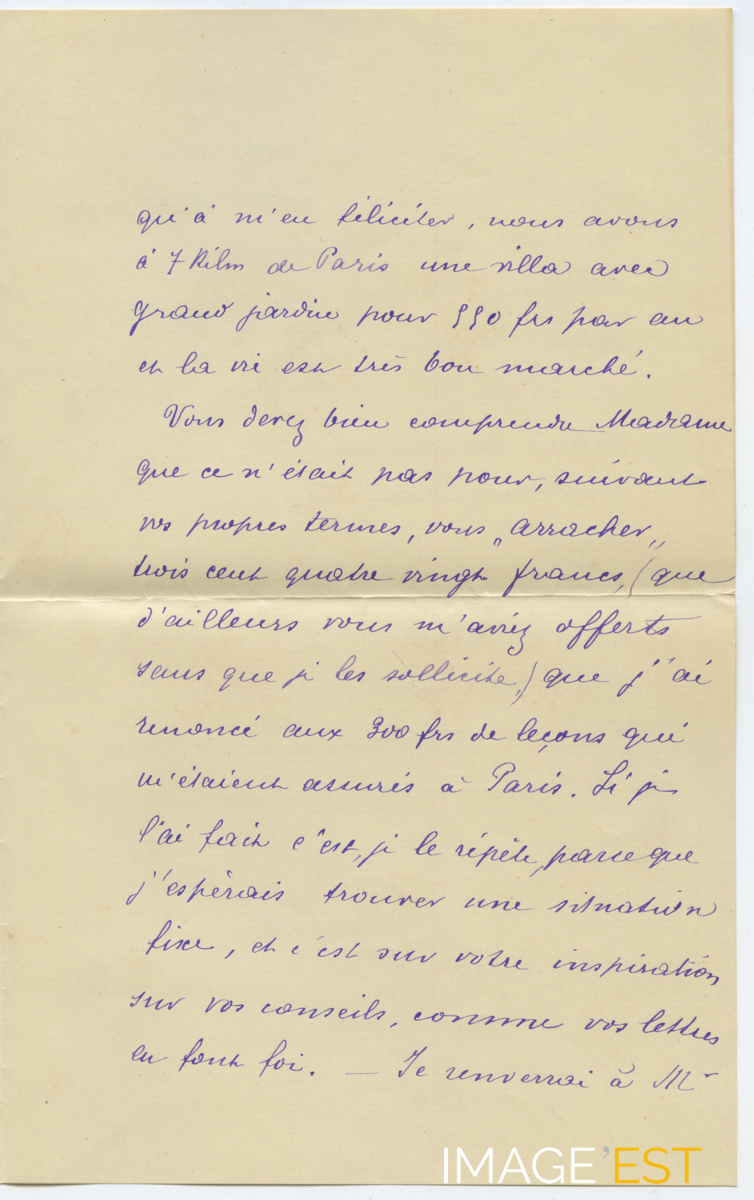 qu'à m'en féliciter, nous avons
à 7 Kilm de Paris une villa avec
grand jardin pour 550 frs par an
et la vie est très bon marché.
Vous devez bien comprendre Madame
que ce n'était pas pour, suivant
vos propres termes, vous „arracher„
trois cent quatre vingt francs, (que
d'ailleurs vous m'aviez offerts
sans que je les sollicite,) que j'ai
renoncé aux 300 frs de leçons qui
m'étaient assurés à Paris. Si je
l'ai fait c'est, je le répète, parce que
j'espérais trouver une situation
fixe, et c'est sur votre inspiration
sur vos conseils, comme vos lettres
en font foi. — Je renverrai à Mr
IMAGE'EST